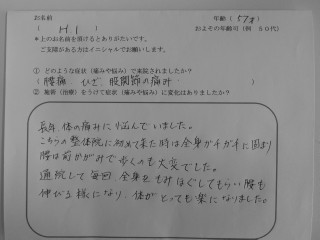 お名前
年齢 ( 57才 )
( H. I )
およその年齢可 (例 50代)
*上のお名前を頂けるとありがたいです。
ご支障がある方はイニシャルでお願いします。
① どのような症状(痛みや悩み)で来院されましたか?
( 腰痛 ひざ、股関節の痛み )
② 施術(治療)をうけて症状(痛みや悩み)に変化はありましたか?
長年、体の痛みに悩んでいました。
こちらの整体院に初めて来た時は全身ガチガチに固まり
腰は前かがみで歩くのも大変でした。
通院して毎回、全身をもみほぐしてもらい腰も
伸びる様になり、体がとっても楽になりました。